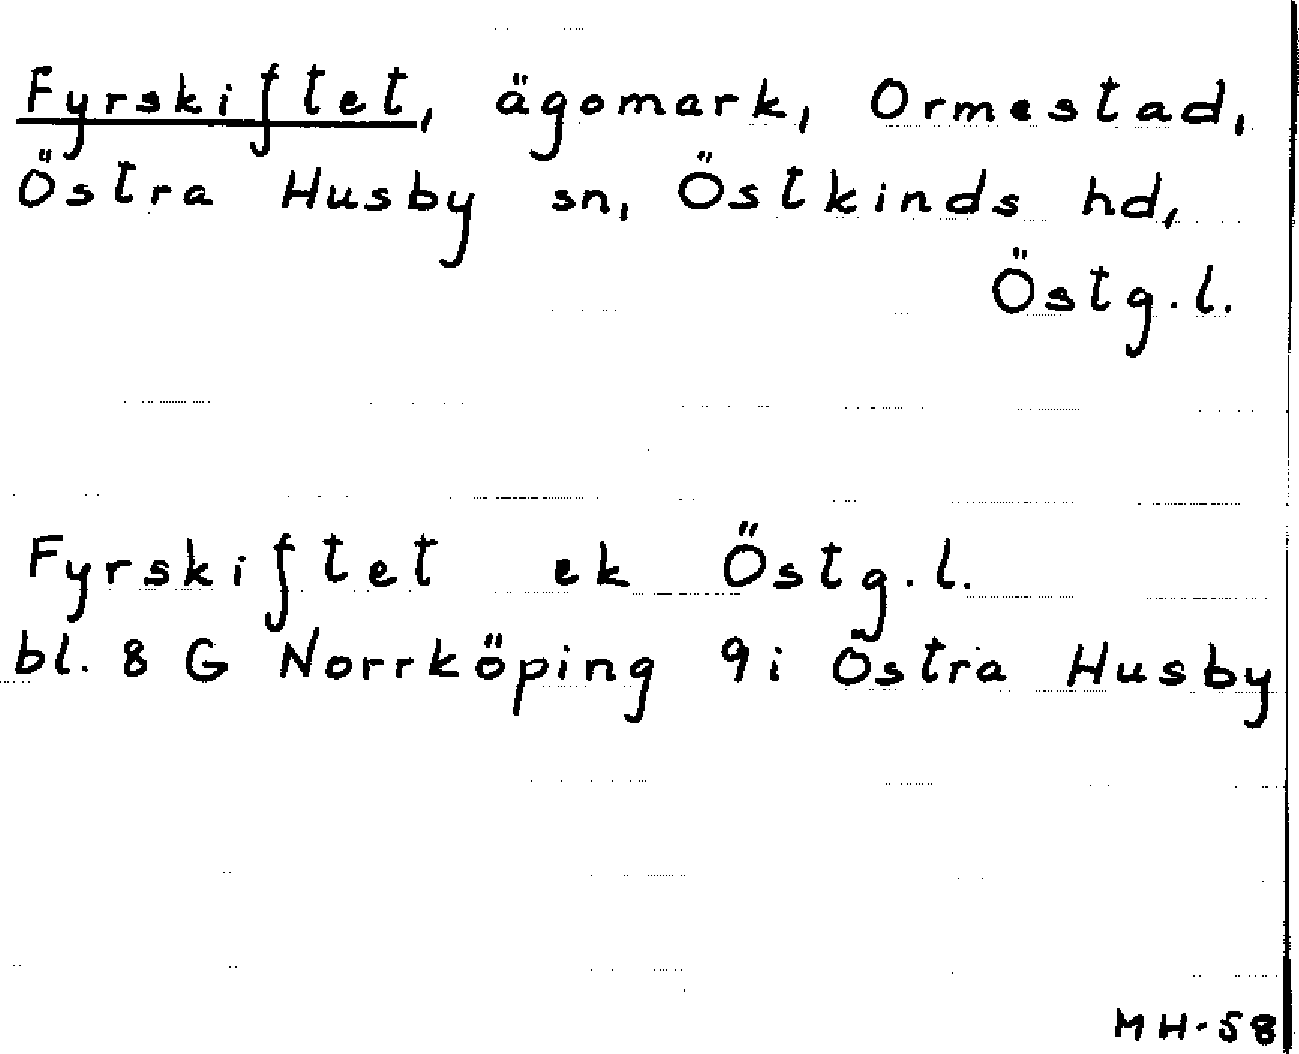 Fyrskiftet, ägomark, Ormestad,
Östra Husby sn, Östkinds hd,
Östg.l.
Fyrskiftet ek Östg.l.
bl. 8 G Norrköping 9i Östra Husby
MH-58